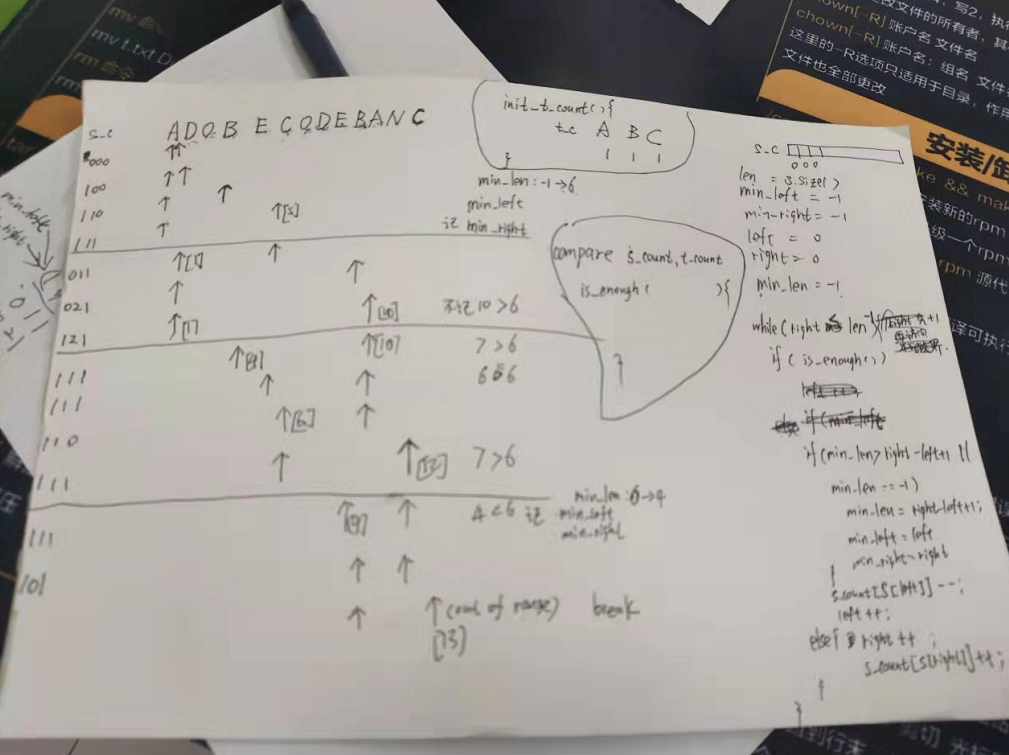 mv t.txt D
rm 命令
rm
tar
改文件的所有者，其
chown[-R] 账户名 文件名
chown[-R] 账户名：组名 文件
这里的-R选项只适用于目录，作用
文件也全部更改
安装/卸
ke && mak
安装新的rpm
级一个rpm
rpm 源代
译可执行
min_left
right
011
21
S_C ADOBECODEBANC
000
100
110
111
011
021
121
111
111
110
111
111
101
[5]
[1]
[10]
不记 10>6
[1]
[10] 7>6
[3]
6=6
[5]
[12] 7>6
[9] 4<6 记
min_len: 6→4
min_left
min_right
(out of range) break
[13]
init_t_count(){
tc A B C
1 1 1
}
min_len: -1→6
min_left
记 min_right
compare s_count, t_count
is_enough( ){
}
S_C
0 0 0
len = s.size()
min_left = -1
min-right = -1
left = 0
right = 0
min_len = -1
while(right len-1)
if( is_enough())
if(min_len>right-left+1 ||
min_len == -1)
min_len = right-left+1;
min_left = left
min_right=right
}
s_count[s[left]]--;
left++;
else{ right++ ;
s_count[s[right]]++;
}
}